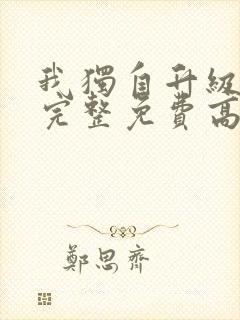 我獨自升級
完整免費高
鄭思齊